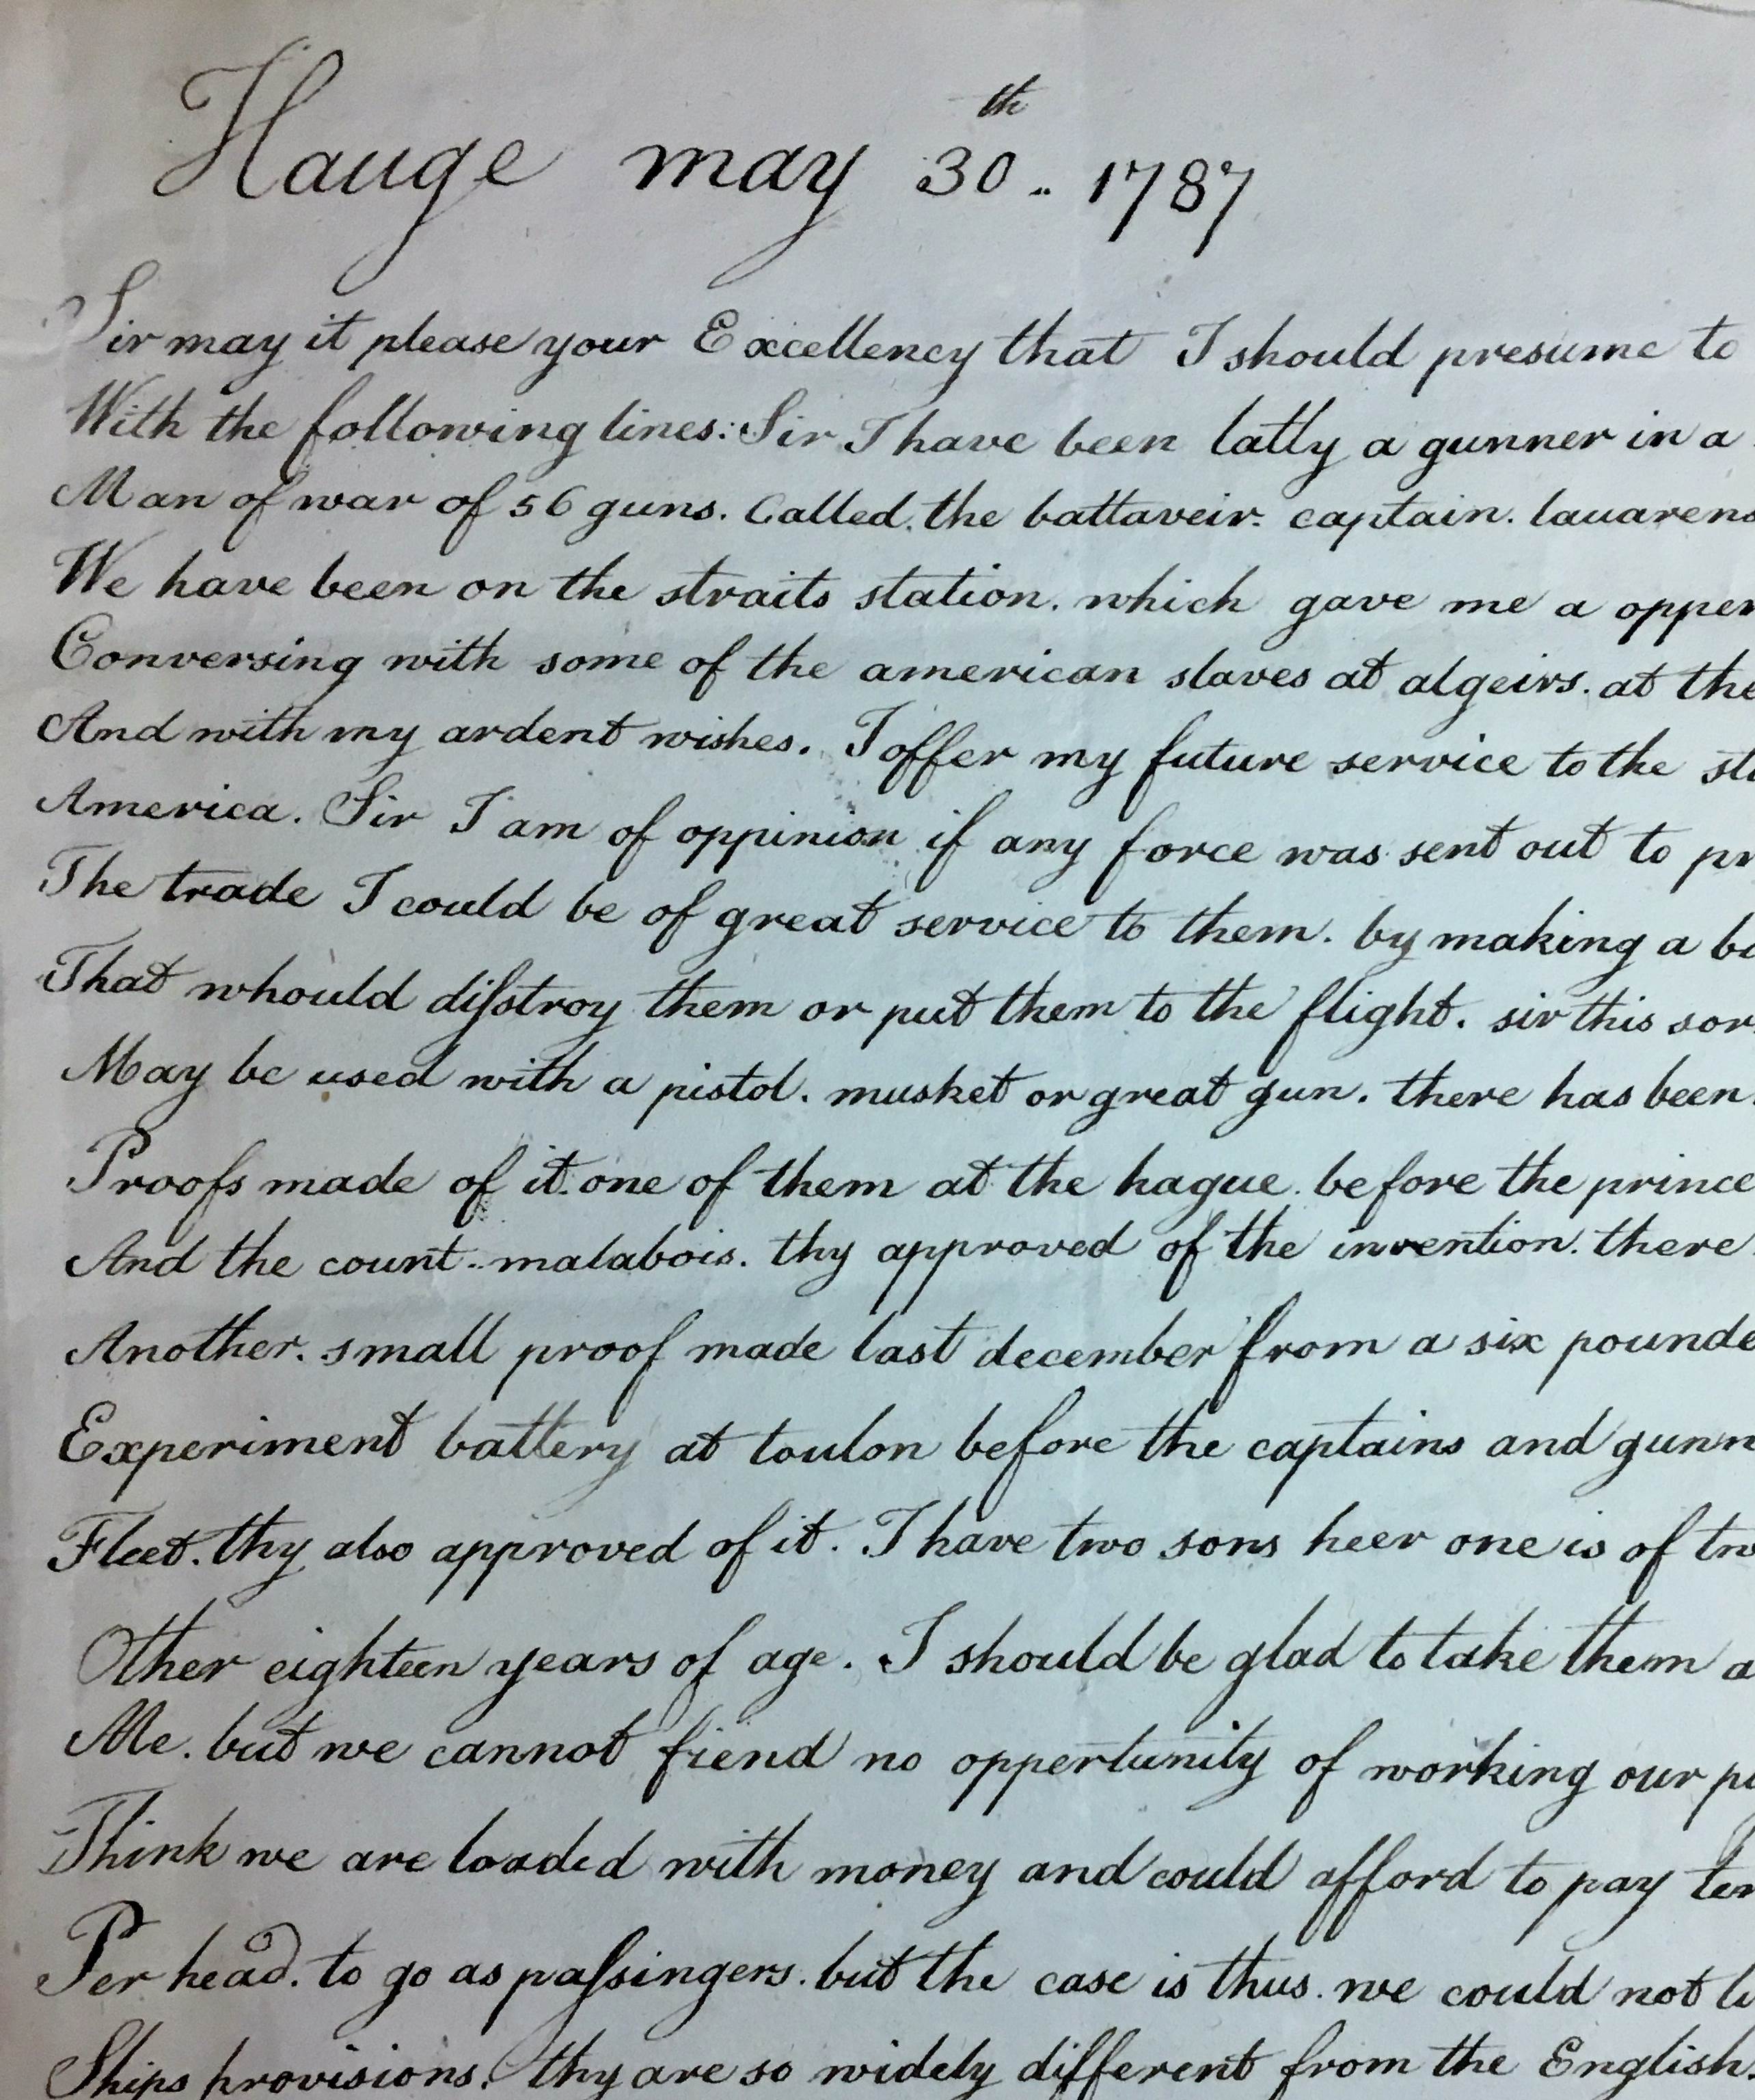 Hauge may 30th.. 1787
Sir may it please your Excellency that I should presume to
With the following lines: Sir I have been latly a gunner in a
Man of war of 56 guns. Called. the battaveir. captain. lauarens
We have been on the straits station. which gave me a opper
Conversing with some of the american slaves at algeirs. at the
And with my ardent wishes. I offer my future service to the sta
America. Sir I am of oppinion if any force was sent out to pr
The trade I could be of great service to them. by making a b
That whould disstroy them or put them to the flight. sir this sor
May be used with a pistol. musket or great gun. there has been
Proofs made of it. one of them at the hague. before the prince
And the count.. malabois. thy approved of the invention. there
Another. small proof made last december from a six pounde
Experiment battery at toulon before the captains and gunn
Fleet. thy also approved of it. I have two sons heer one is of tw
Other eighteen years of age. I should be glad to take them a
Me. but we cannot fiend no oppertunity of working our p
Think we are loaded with money and could afford to pay ten
Per head. to go as passingers. but the case is thus. we could not li
Ships provisions. thy are so widely different from the English.